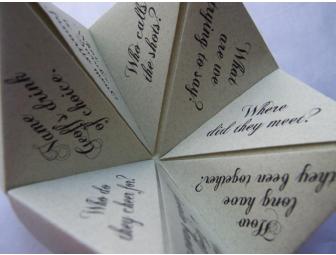 Who calls
the shots?
What
are we
trying to say?
Where
did they meet?
How
long have
they been together?
Who do
they cheer for?
Name
Geoff's drink
of choice.